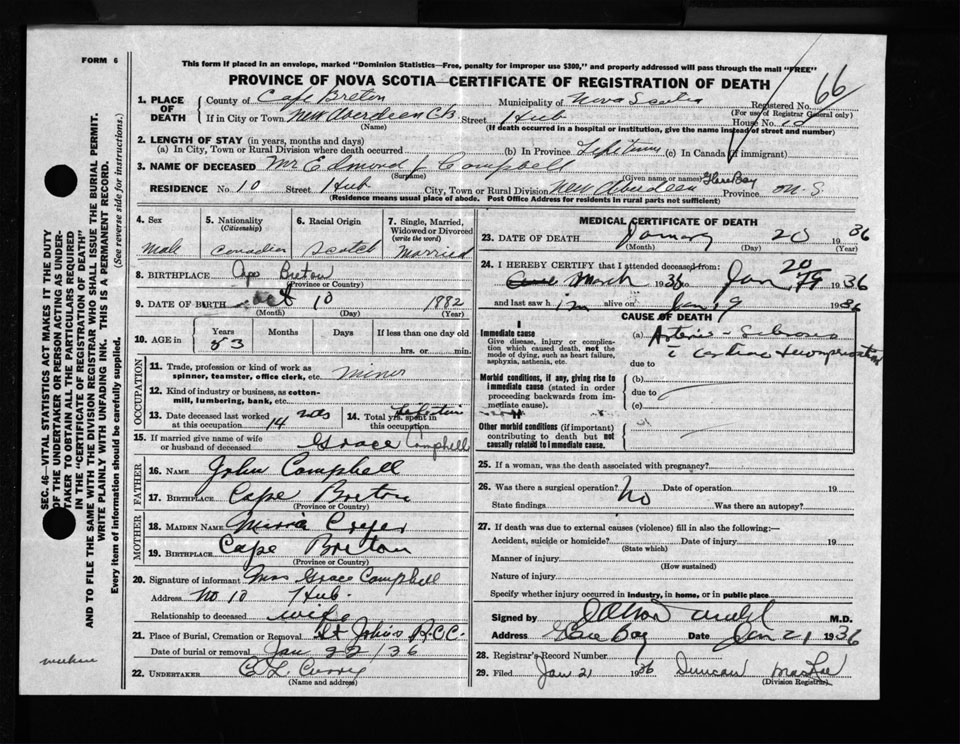 FORM 6
This form if placed in an envelope, marked "Dominion Statistics—Free, penalty for improper use $300," and properly addressed will pass through the mail "FREE"
PROVINCE OF NOVA SCOTIA—CERTIFICATE OF REGISTRATION OF DEATH
66
1. PLACE OF DEATH
County of Cape Breton Municipality of Nova Scotia Registered No.
(For use of Registrar General only)
If in City or Town New Aberdeen C.B. Street 1 Hub House No. 10
(Name) (If death occurred in a hospital or institution, give the name instead of street and number)
2. LENGTH OF STAY (in years, months and days)
(a) In City, Town or Rural Division where death occurred (b) In Province Lifetime (c) In Canada (if immigrant)
3. NAME OF DECEASED Mr Edmond J Campbell
(Surname) (Given name or names)
RESIDENCE No. 10 Street 1 Hub City, Town or Rural Division New Aberdeen Glace Bay Province N.S.
(Residence means usual place of abode. Post Office Address for residents in rural parts not sufficient)
4. Sex
Male
5. Nationality
(Citizenship)
Canadian
6. Racial Origin
Scotch
7. Single, Married, Widowed or Divorced
(write the word)
Married
8. BIRTHPLACE Cape Breton
(Province or Country)
9. DATE OF BIRTH Oct 10 1882
(Month) (Day) (Year)
10. AGE in
Years Months Days If less than one day old
53 hrs. or min.
OCCUPATION
11. Trade, profession or kind of work as spinner, teamster, office clerk, etc. Miner
12. Kind of industry or business, as cotton-mill, lumbering, bank, etc.
13. Date deceased last worked at this occupation 14
14. Total yrs. spent in this occupation Life time
15. If married give name of wife or husband of deceased Grace Campbell
FATHER
16. NAME John Campbell
17. BIRTHPLACE Cape Breton
(Province or Country)
MOTHER
18. MAIDEN NAME
19. BIRTHPLACE Cape Breton
(Province or Country)
20. Signature of informant Mrs Grace Campbell
Address No 10 1 Hub
Relationship to deceased wife
21. Place of Burial, Cremation or Removal St John's R.C.C.
Date of burial or removal Jan 22/36
22. UNDERTAKER
(Name and address)
MEDICAL CERTIFICATE OF DEATH
23. DATE OF DEATH January 20 1936
(Month) (Day) (Year)
24. I HEREBY CERTIFY that I attended deceased from:
March 1936 to Jan 20 1936
and last saw h im alive on Jan 19 1936
CAUSE OF DEATH
Immediate cause
Give disease, injury or complication which caused death, not the mode of dying, such as heart failure, asphyxia, asthenia, etc.
(a) Arterio-
due to
Morbid conditions, if any, giving rise to immediate cause (stated in order proceeding backwards from immediate cause).
(b)
due to
(c)
Other morbid conditions (if important) contributing to death but not causally related to immediate cause.
25. If a woman, was the death associated with pregnancy?
26. Was there a surgical operation? No Date of operation 19
State findings Was there an autopsy?
27. If death was due to external causes (violence) fill in also the following:—
Accident, suicide or homicide? Date of injury 19
(State which)
Manner of injury
(How sustained)
Nature of injury
Specify whether injury occurred in industry, in home, or in public place.
Signed by M.D.
Address Glace Bay Date Jan 21 1936
28. Registrar's Record Number
29. Filed Jan 21 1936 Duncan MacRae
(Division Registrar)
SEC. 46—VITAL STATISTICS ACT MAKES IT THE DUTY OF THE UNDERTAKER OR PERSON ACTING AS UNDERTAKER TO OBTAIN ALL THE PARTICULARS REQUIRED IN THE "CERTIFICATE OF REGISTRATION OF DEATH" AND TO FILE THE SAME WITH THE DIVISION REGISTRAR WHO SHALL ISSUE THE BURIAL PERMIT.
WRITE PLAINLY WITH UNFADING INK. THIS IS A PERMANENT RECORD.
Every item of information should be carefully supplied. (See reverse side for instructions.)